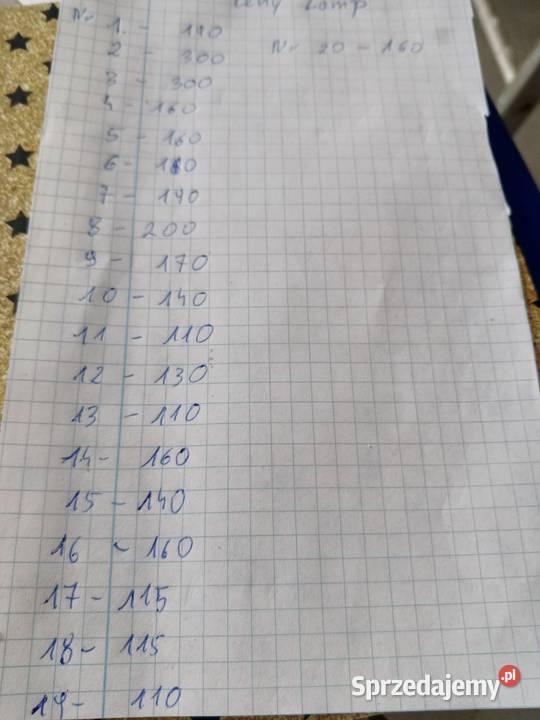 Ceny Lamp
Nr 1. - 140
2 - 300
3 - 300
4 - 160
5 - 160
6 - 160
7 - 140
8 - 200
9 - 170
10 - 140
11 - 110
12 - 130
13 - 110
14 - 160
15 - 140
16 - 160
17 - 115
18 - 115
19 - 110
Nr 20 - 160
Sprzedajemy.pl